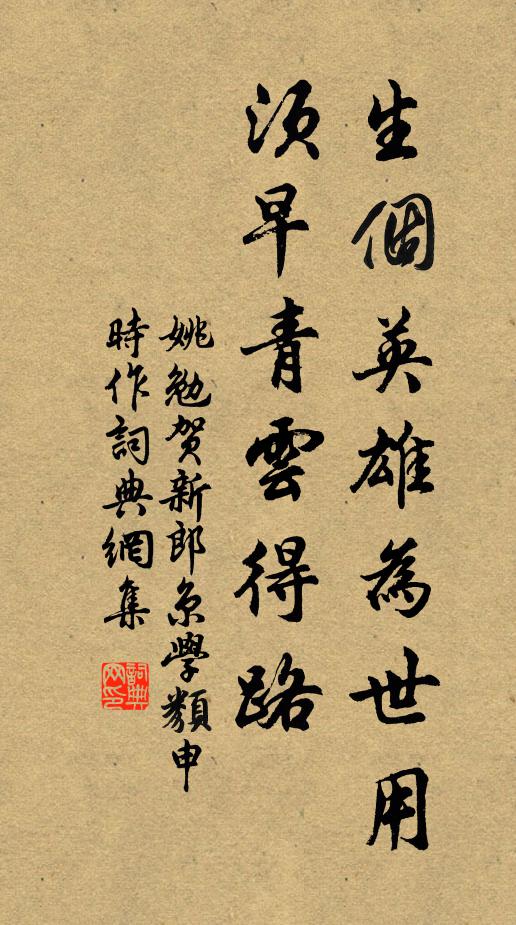 生個英雄為世用
須早青雲得路
姚勉賀新郎京學類申
時作詞典網集
詞典
网印